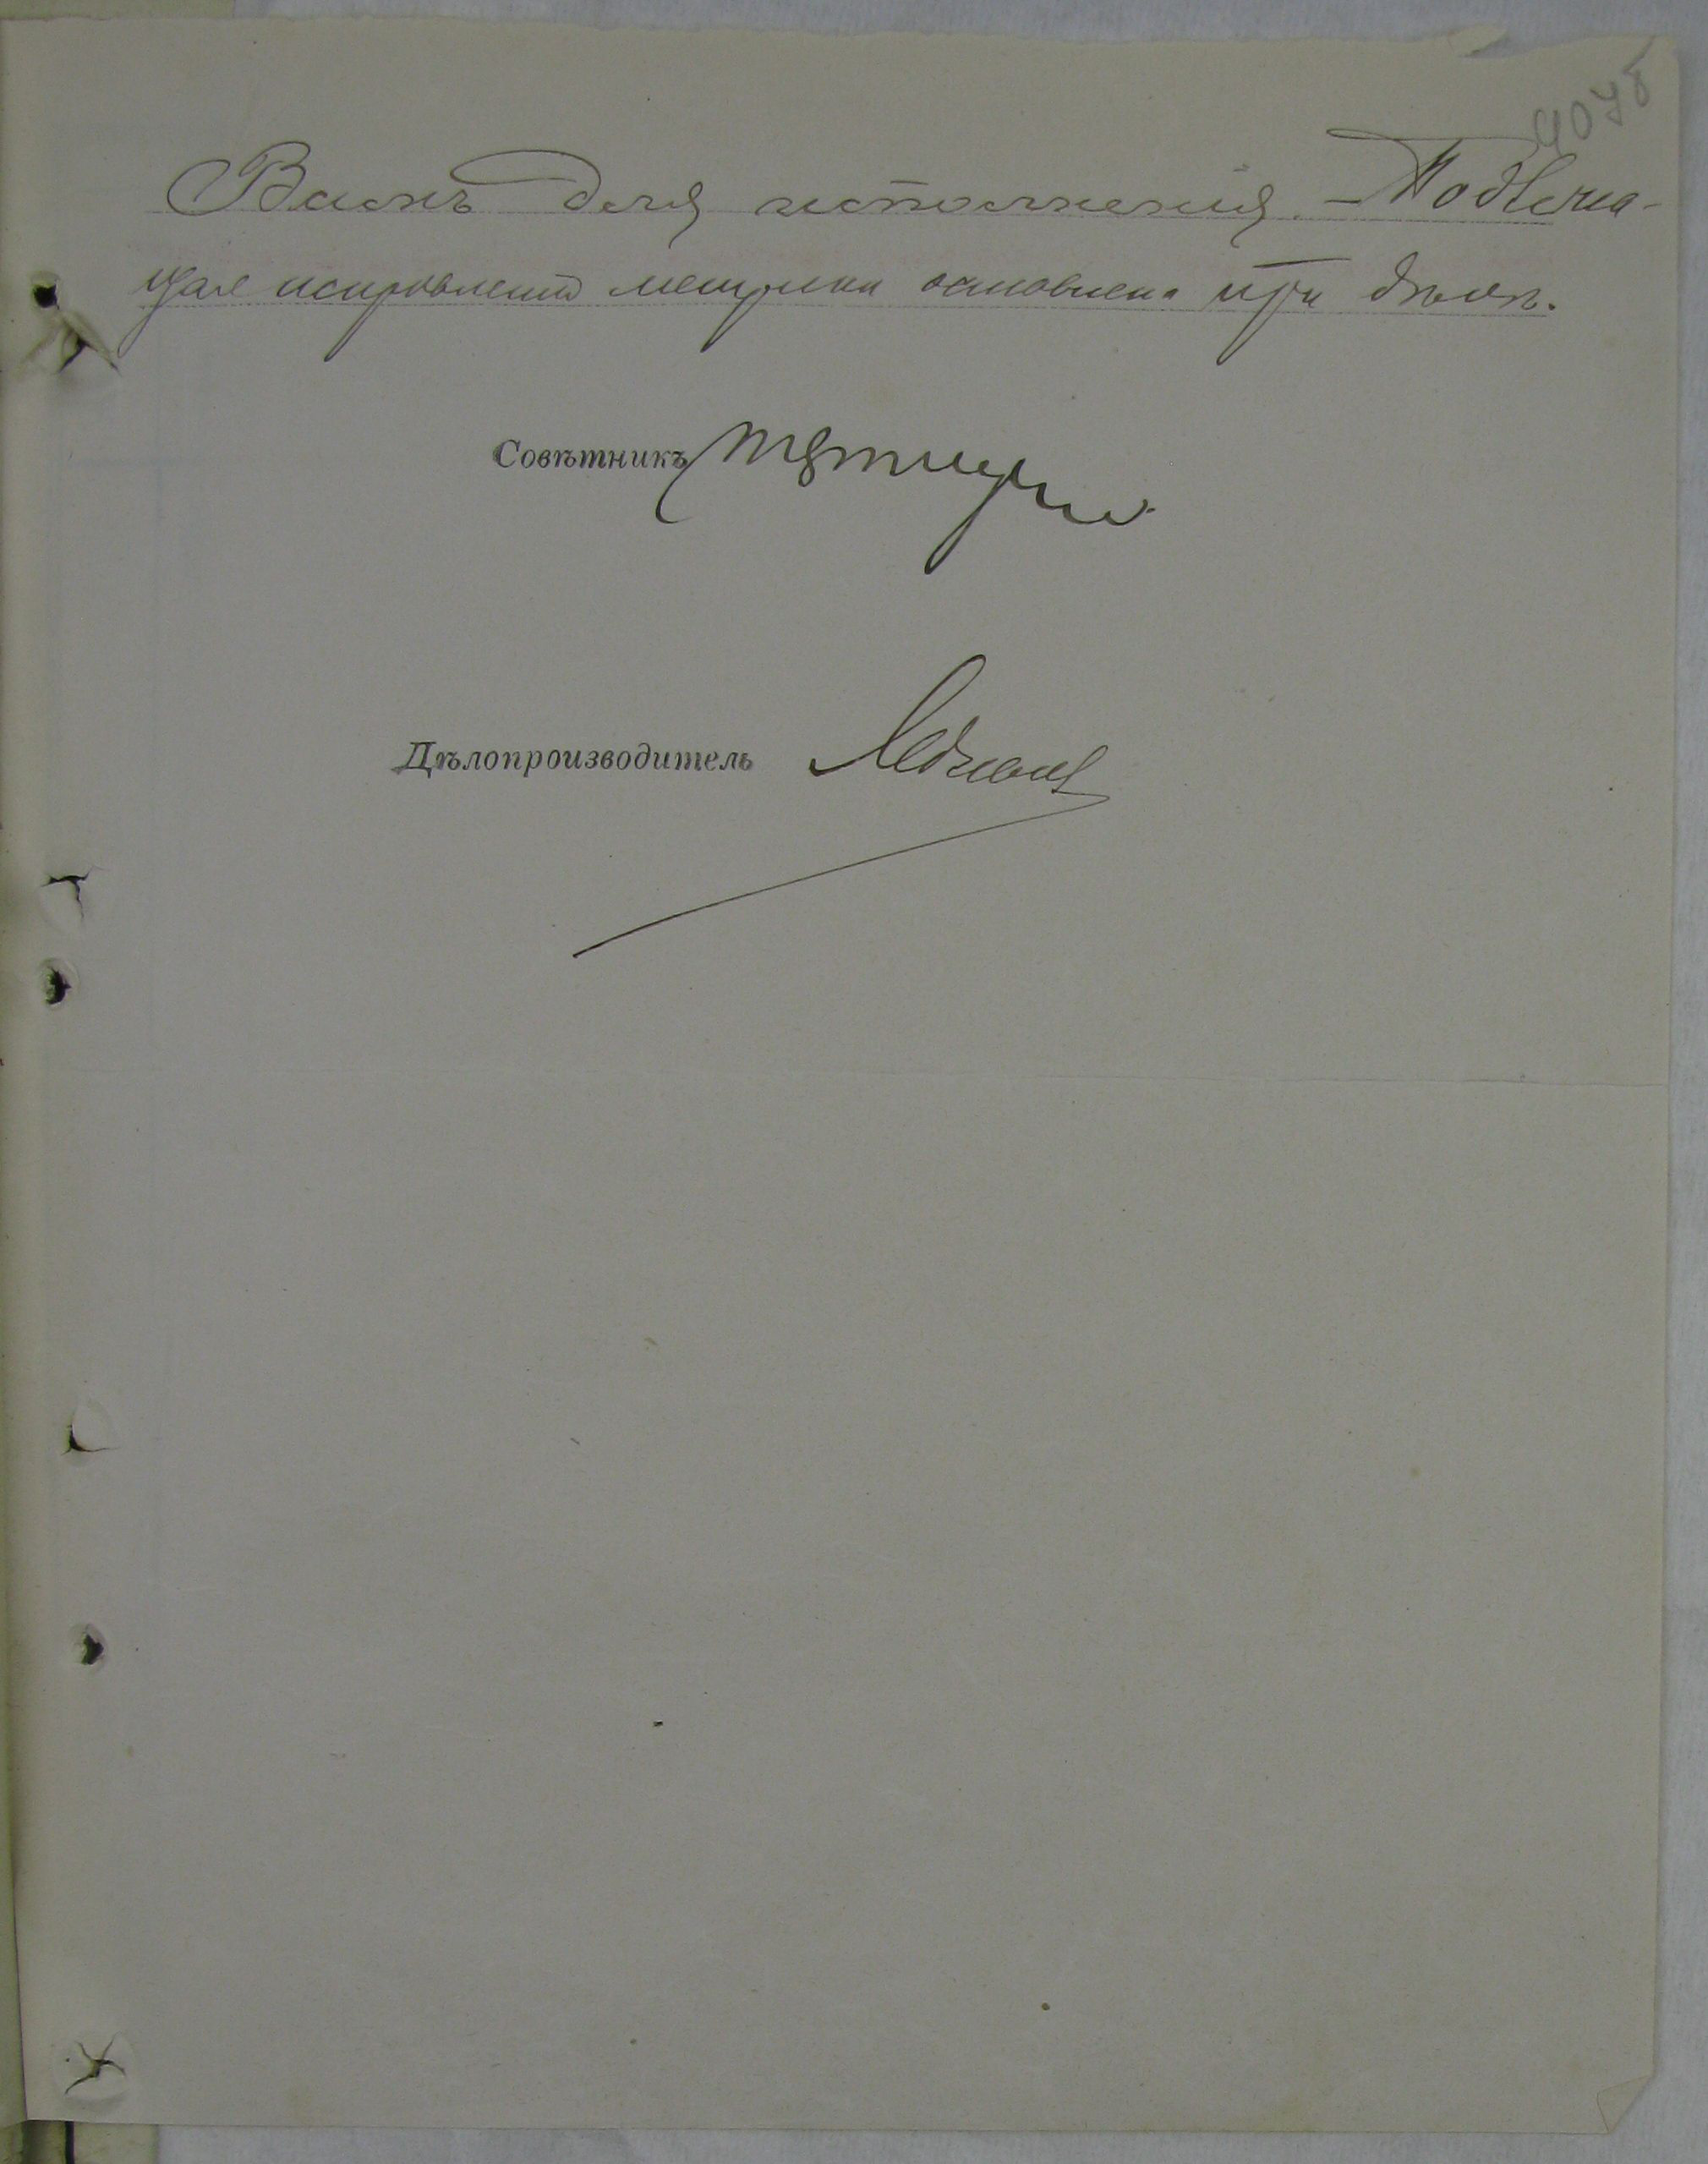 Вамъ для исполненія. – Подлежа-
щая исправленію метрика оставлена при дѣлѣ.
Совѣтникъ
Дѣлопроизводитель